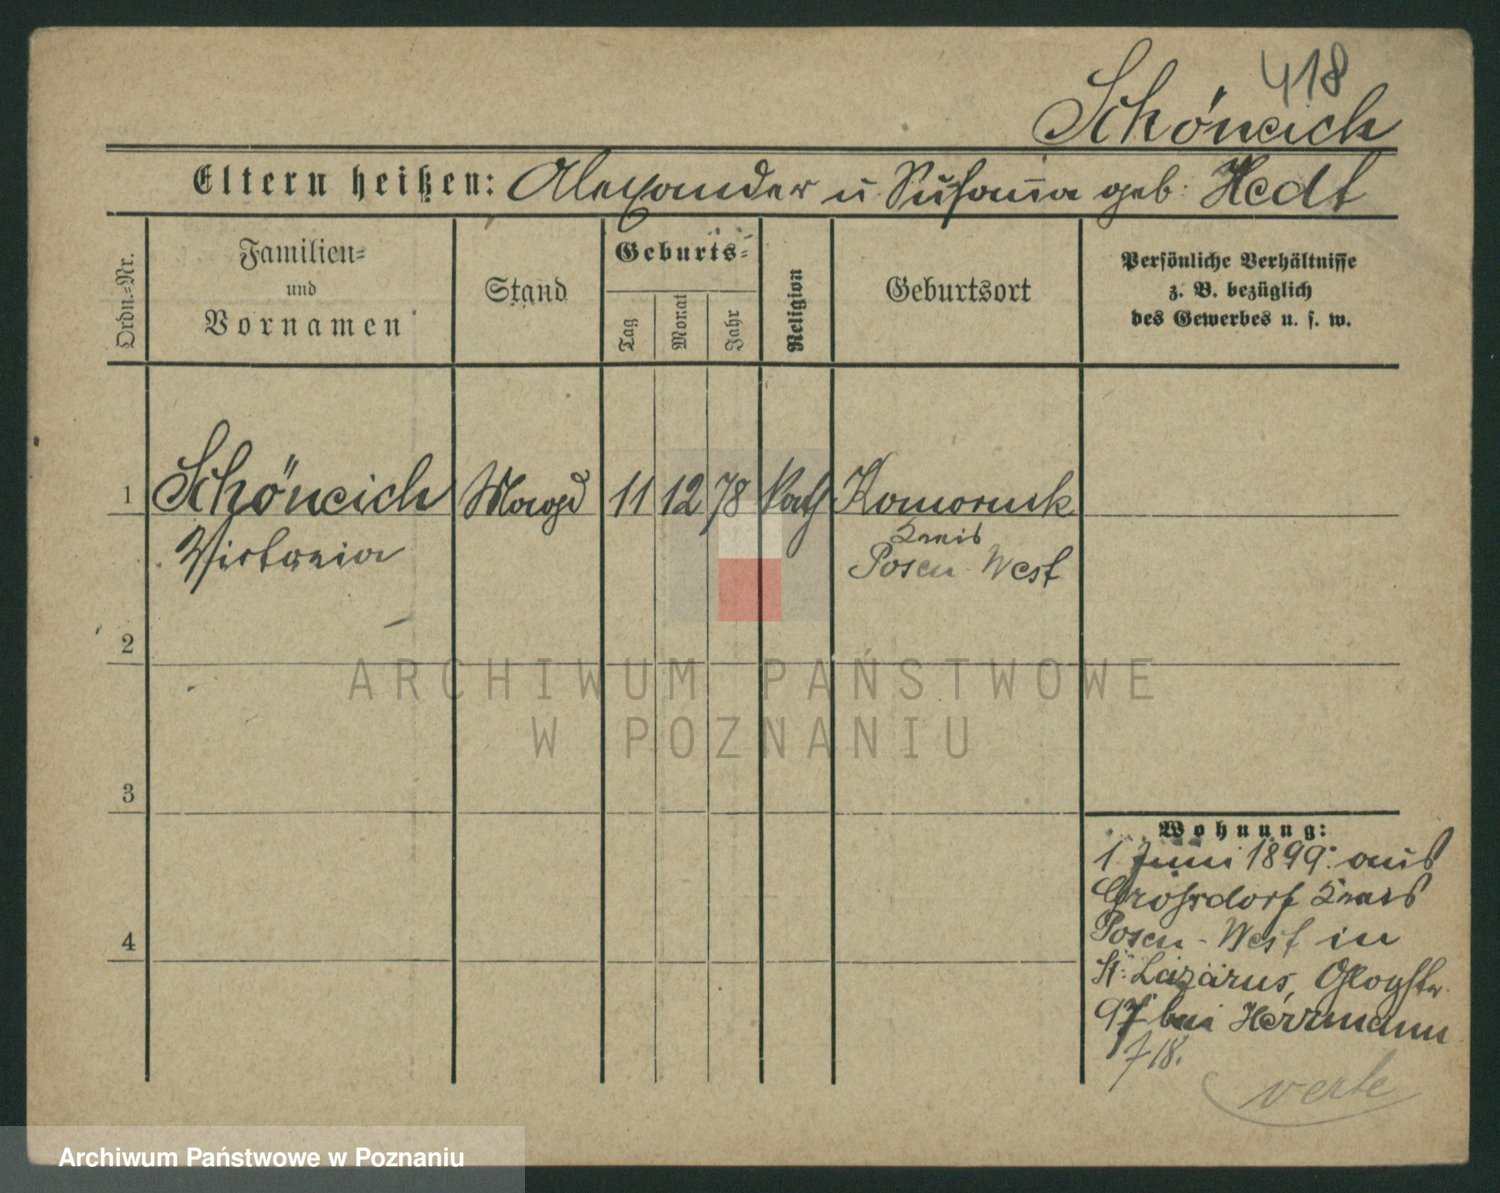 418
Schöneich
Eltern heißen: Alexander u Susanna geb: Hedt
Ordn.-Nr.
Familien-
und
Vornamen
Stand
Geburts-
Tag
Monat
Jahr
Religion
Geburtsort
Persönliche Verhältnisse
z. B. bezüglich
des Gewerbes u. s. w.
1 Schöneich Magd 11 12 78 Kath Komornik
Kreis
Victoria Posen West
2
ARCHIWUM PAŃSTWOWE
W POZNANIU
3
Wohnung:
1 Juni 1899: aus
Grossdorf Kreis
4 Posen-West in
St. Lazarus, Glogstr.
97 bei Herrmann
718.
verte
Archiwum Państwowe w Poznaniu